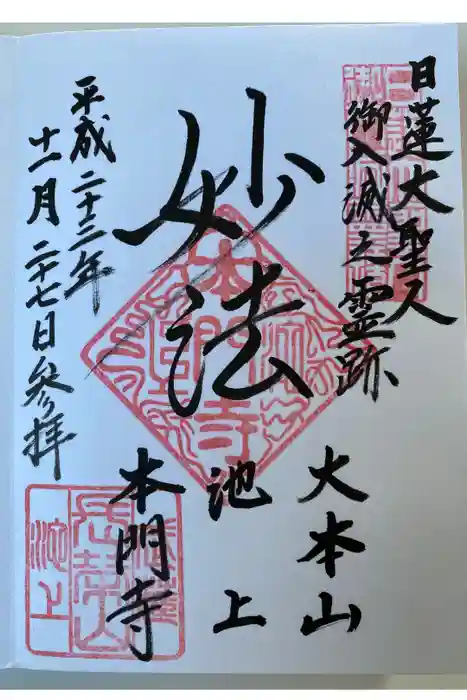 日蓮大聖人
御入滅之霊跡
大本山
池上
本門寺
妙法
平成二十三年
十一月二十七日参拝